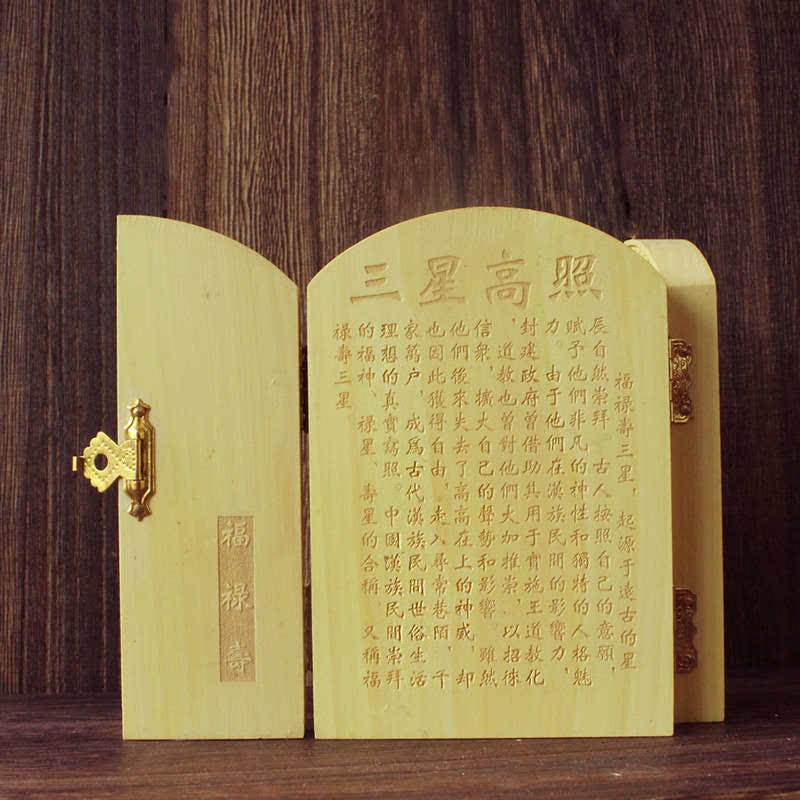 三星高照
福禄壽三星，起源于遠古的星
辰自然崇拜。古人按照自己的意願，
賦予他們非凡的神性和獨特的人格魅
力。由于他們在漢族民間的影響力，
封建政府曾借助其用于實施王道教化
，道教也曾對他們大加推崇，以招徠
信衆，擴大自己的聲勢和影響。雖然
他們後來失去了高高在上的神威，却
也因此獲得自由，走入尋常巷陌，千
家萬户，成爲古代漢族民間世俗生活
理想的真實寫照。中國漢族民間崇拜
的福神、禄星、壽星的合稱，又稱福
禄壽三星
福禄壽